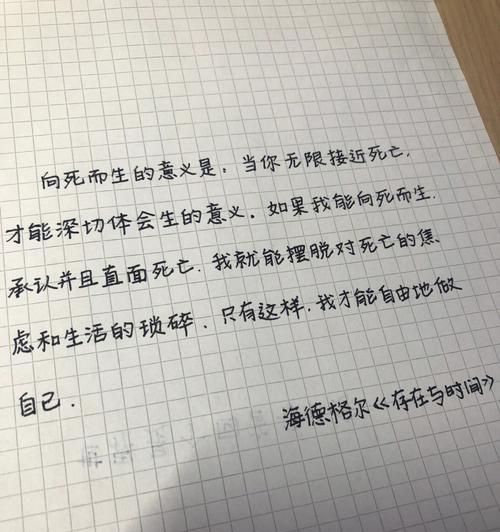 向死而生的意义是：当你无限接近死亡.
才能深切体会生的意义. 如果我能向死而生.
承认并且直面死亡. 我就能摆脱对死亡的焦
虑和生活的琐碎. 只有这样. 我才能自由地做
自己.
海德格尔《存在与时间》